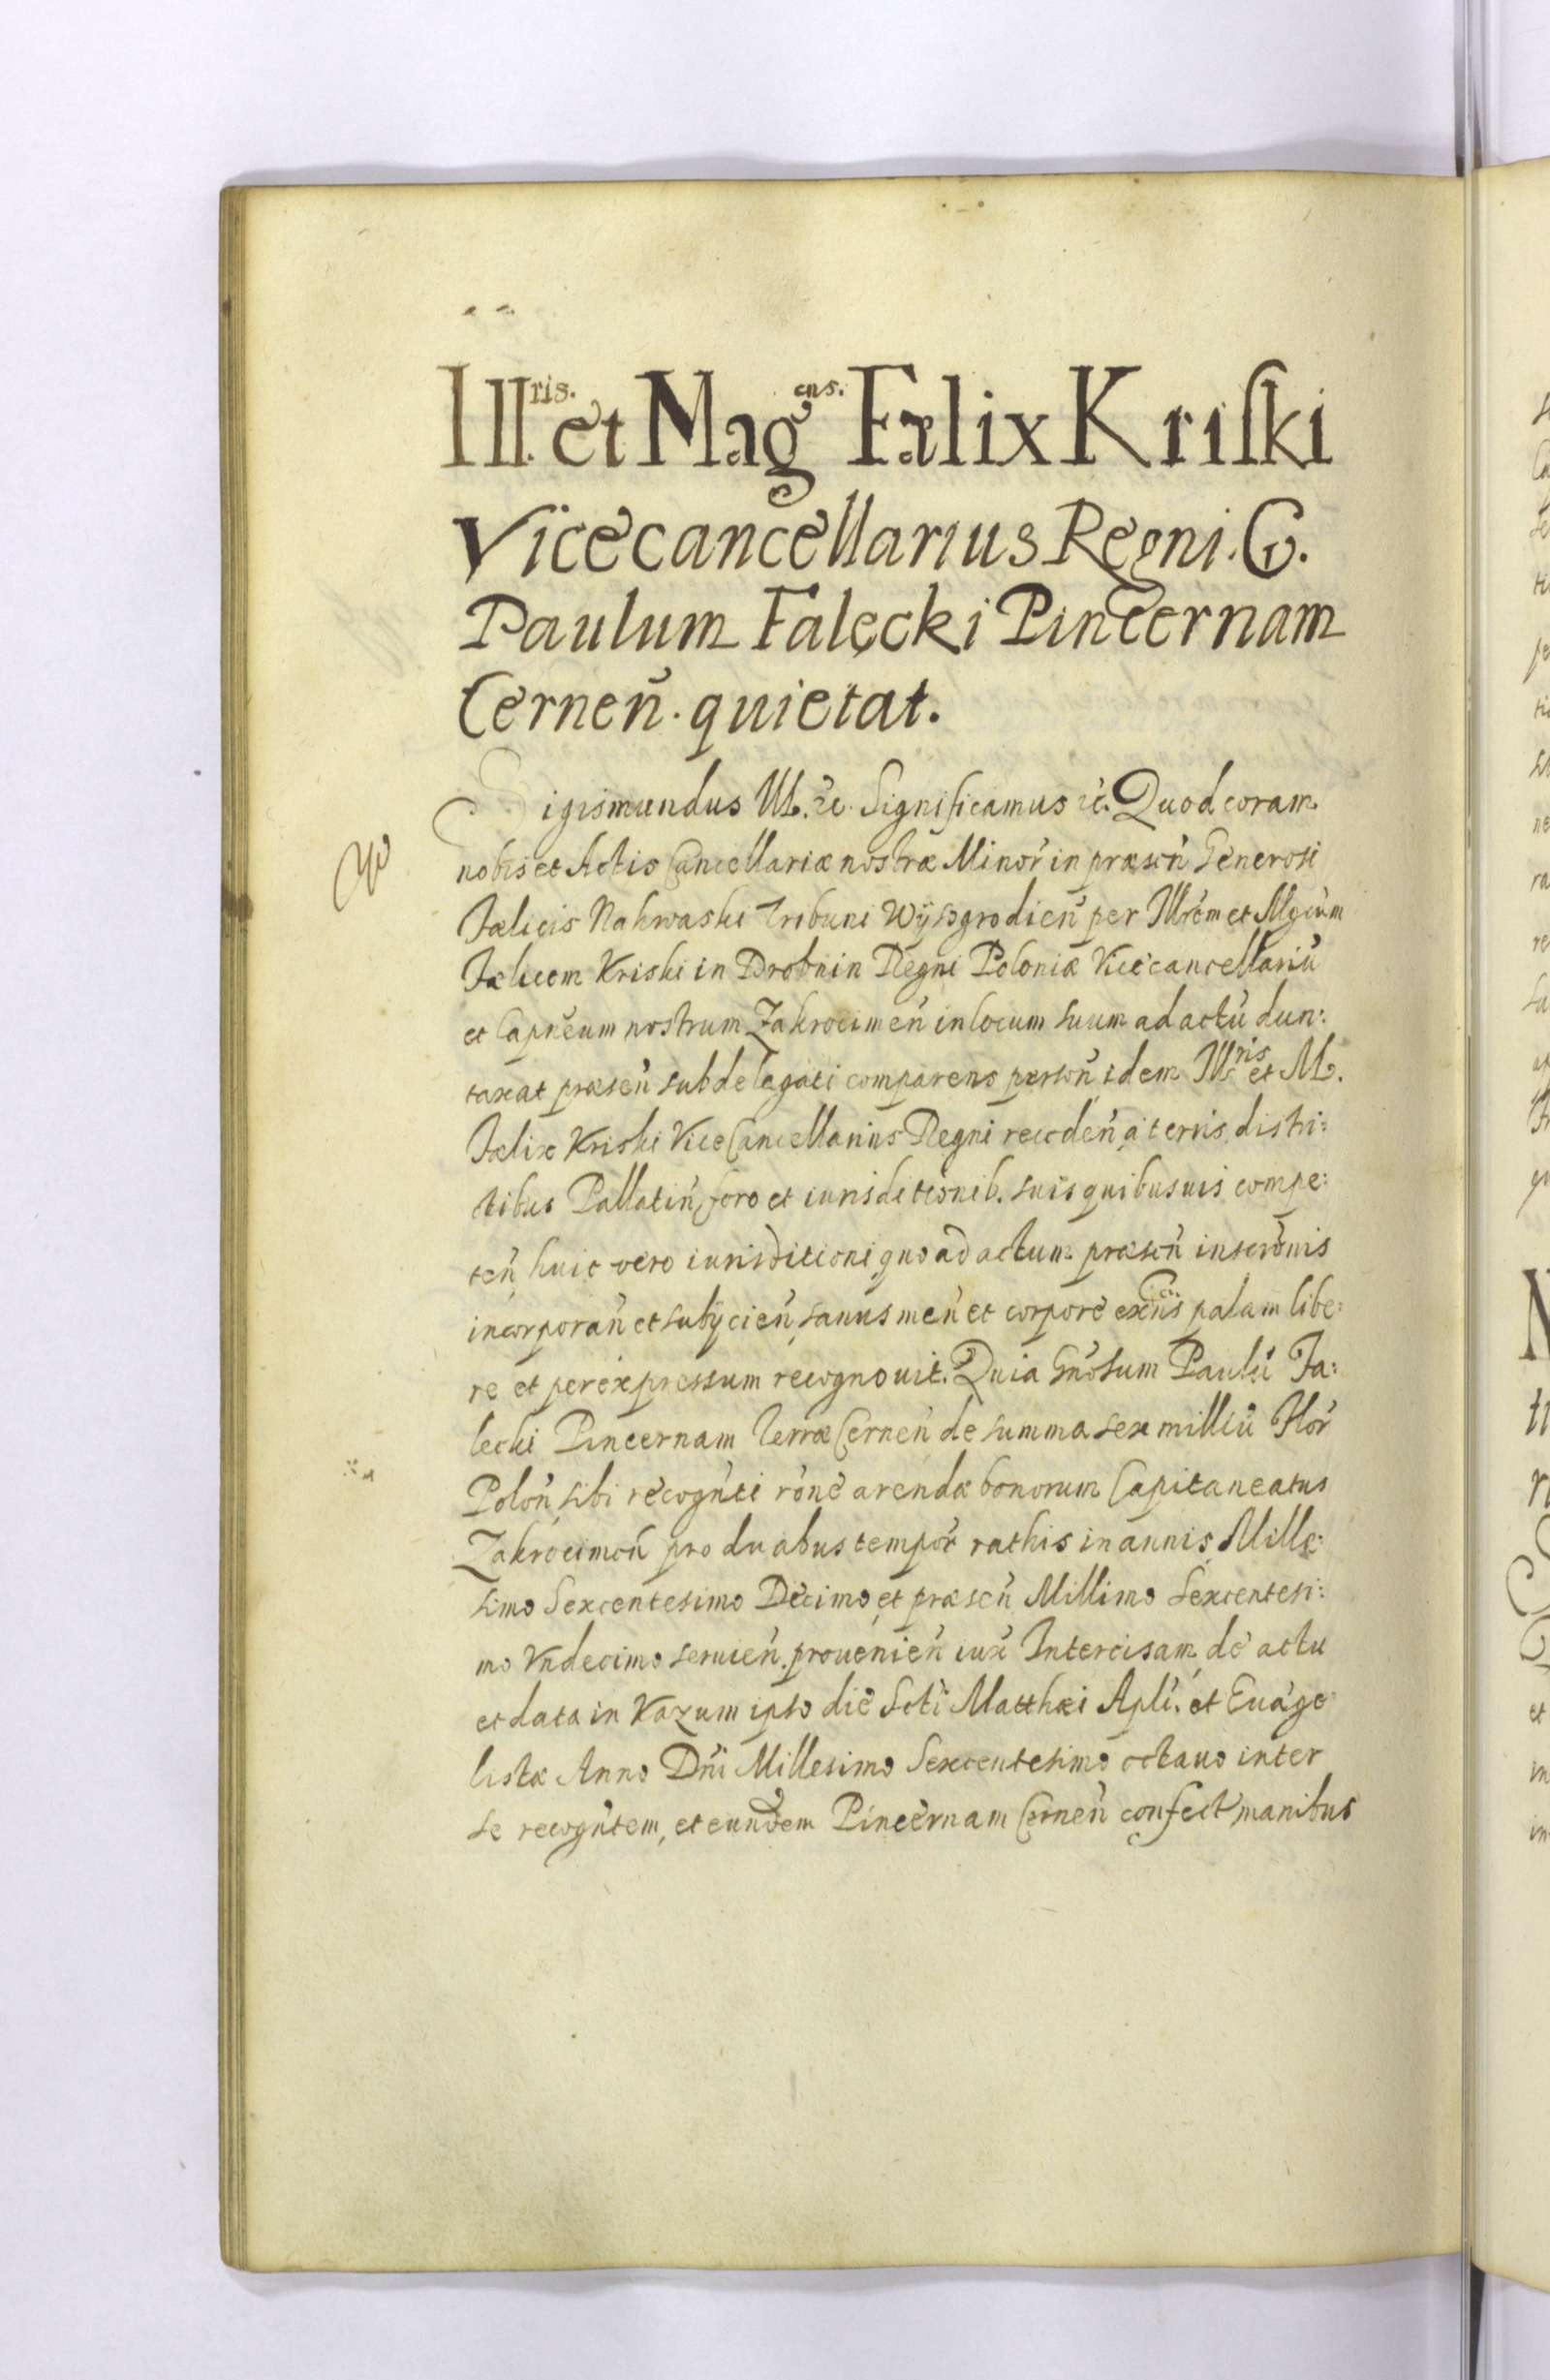 Ill.ris. et Magens. Fælix Kriſki
Vicecancellarius Regni. G.
Paulum Falęcki Pincernam
Cerneñ. quietat.
Sigismundus III. etc. Significamus etc. Quod coram
nobis et Actis Cancellariæ nostræ Minor̃ in præseñ Generosi
Fælicis Nakwaski Tribuni Wÿszgrodień per Illrem et Mgcum
Fælicem Kriski in Drobnin Regni Poloniæ Vicecancellariũ
et Capñeum nostrum Zakrocimeñ in locum suum ad actũ dun:
taxat præseñ subdelegati comparens persoñ idem Illris et M.
Fælix Kriski ViceCancellarius Regni recedeñ a terris, distri:
tibus Pallatiñ, foro et iurisditionib. suis quibusuis compe:
teñ huic vero iurisditioni quo ad actum præseñ inscrõnis
incorporañ et subÿcieñ, sanus meñ et corpore exeñs palam libe:
re et per expressum recognouit. Quia Gñosum Paulũ Fa:
lecki Pincernam Terræ Cerneñ de summa sex milliũ Flor̃
Poloñ sibi recogñti rõne arendæ bonorum Capitaneatus
Zakrocimeñ pro duabus tempor̃ rathis in annis Mille:
simo Sexcentesimo Decimo, et præseñ Millimo Sexcentesi:
mo Vndecimo seruieñ. prouenieñ iux̃ Intercisam de actu
et data in Kazum ipso die Scti Matthæi Apli. et Euãge
listæ Anno Dñi Millesimo Sexcentesimo octauo inter
se recogñtem, et eundem Pincernam Cerneñ confect manibus